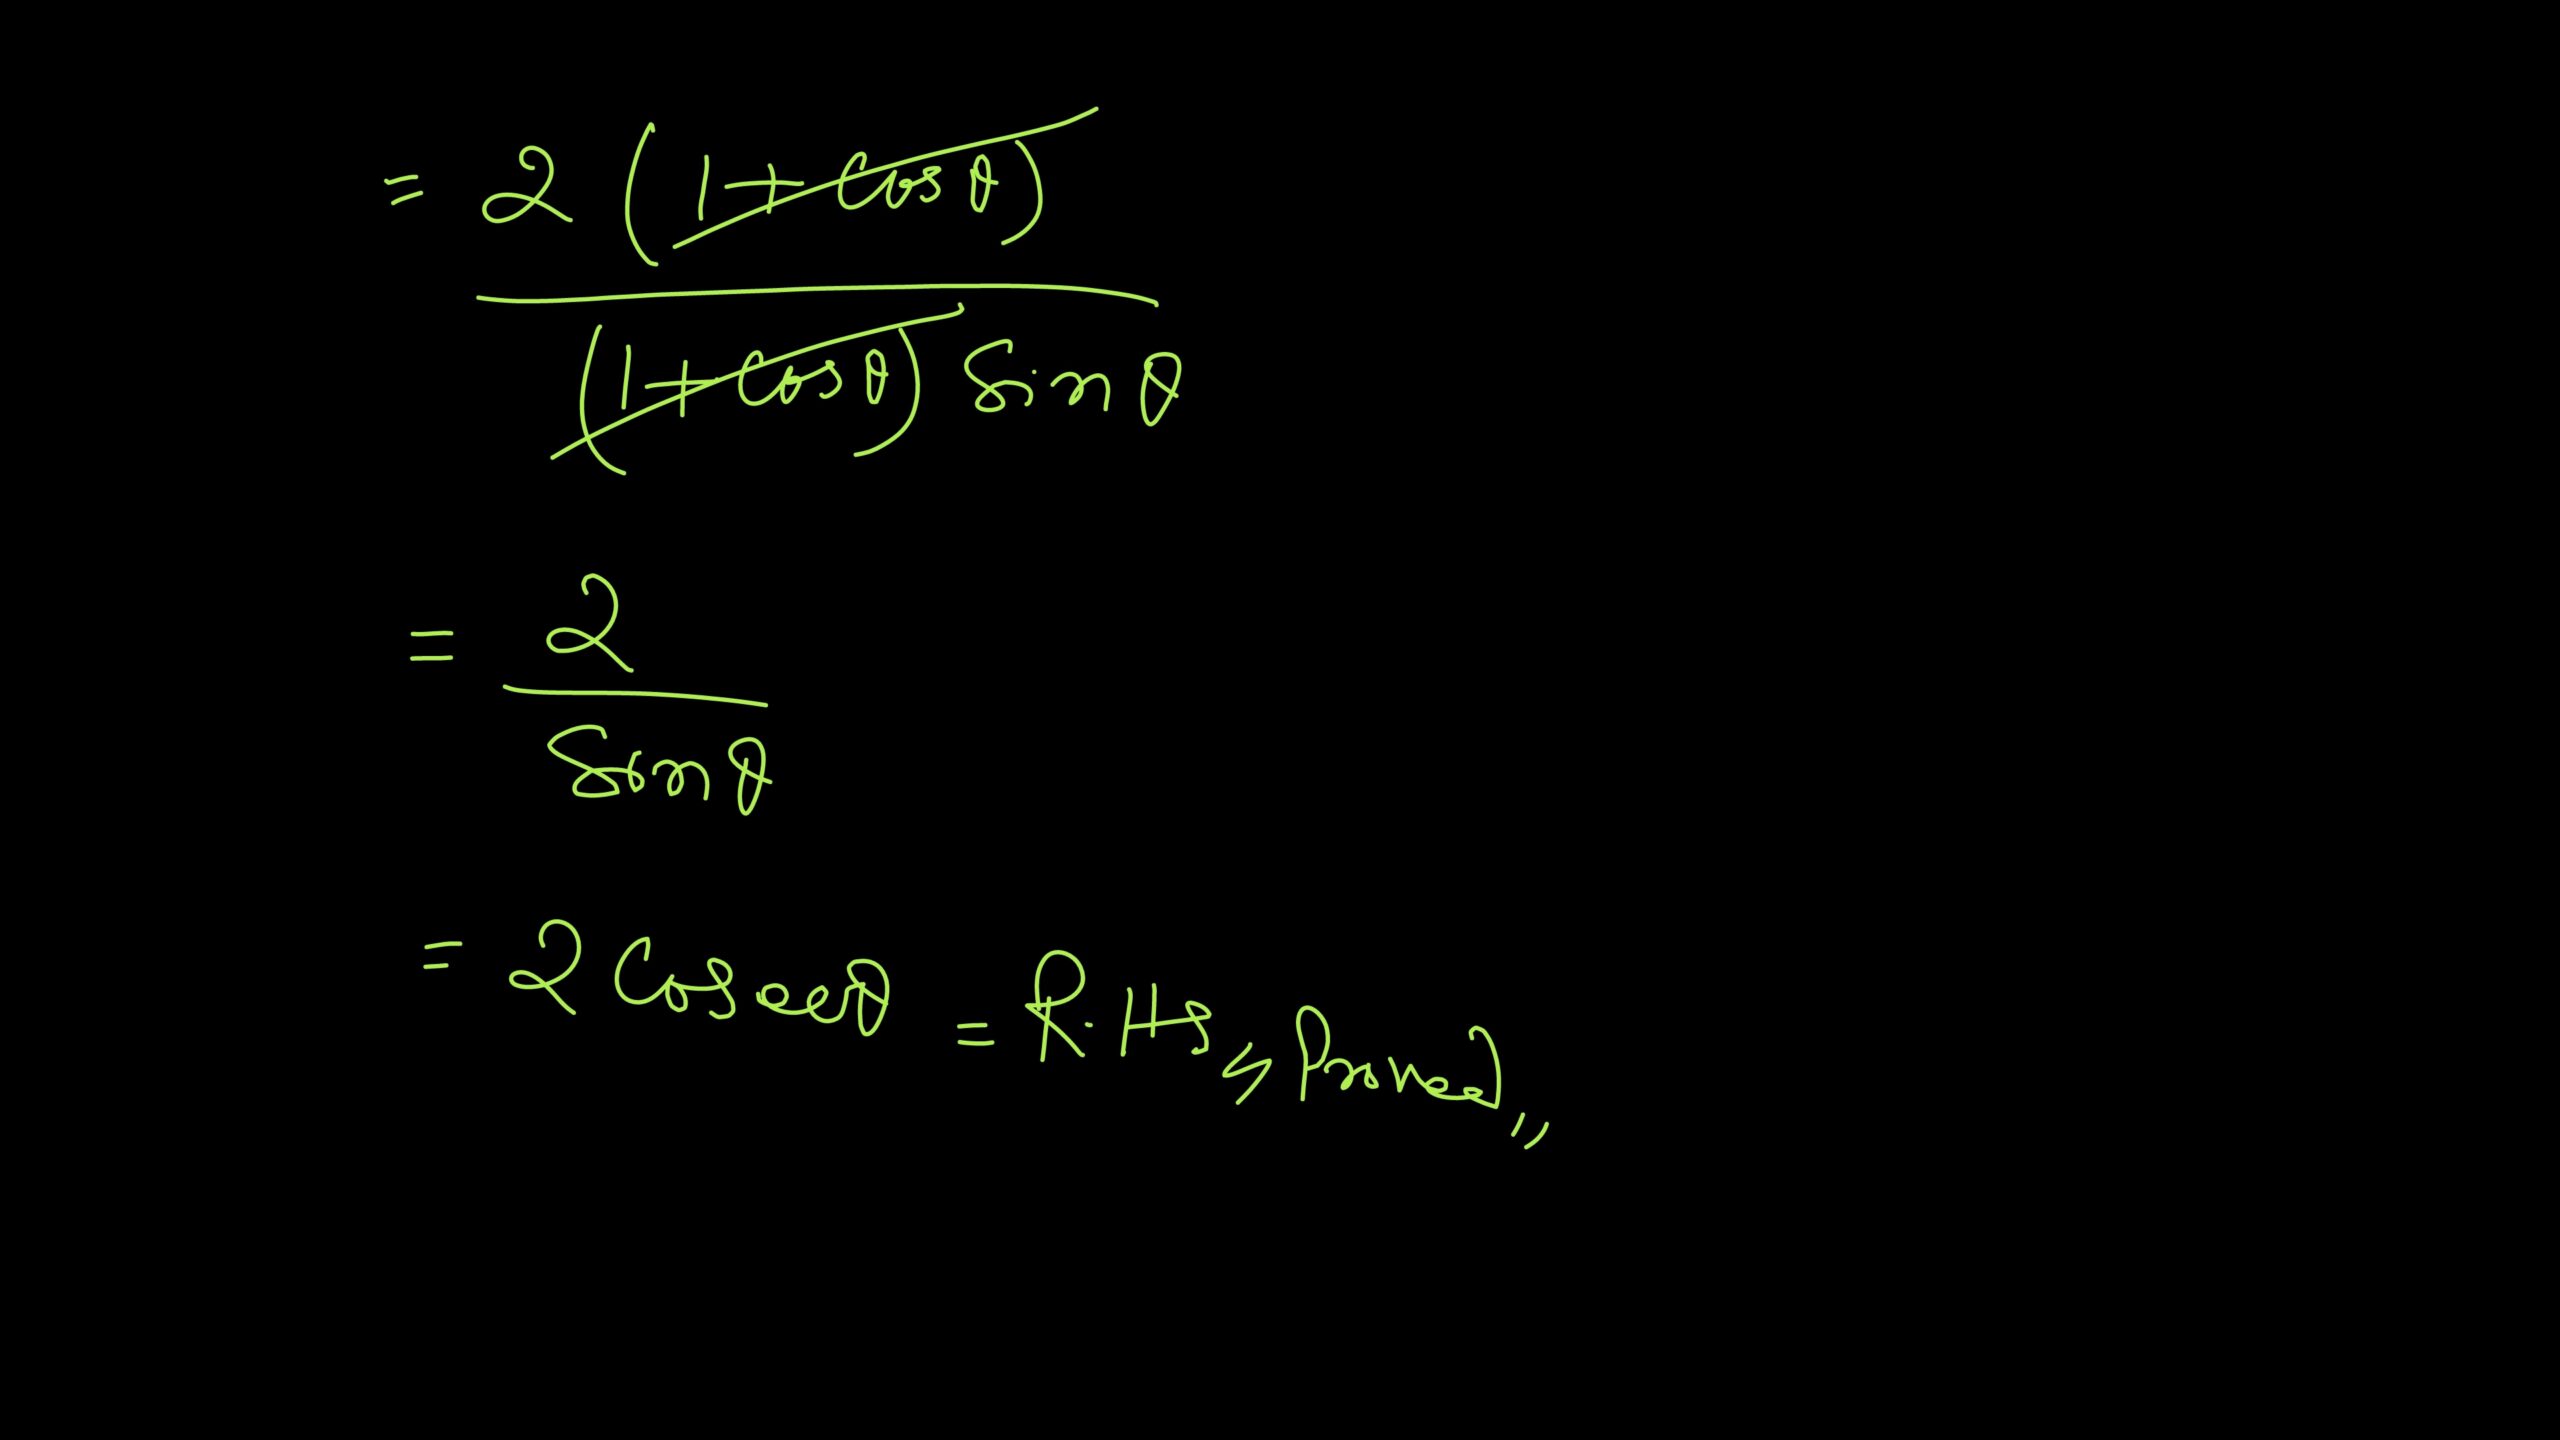 = 2 (1 + Cosθ)
(1 + Cosθ) Sinθ
= 2
Sinθ
= 2 Cosecθ = R.HS,, Proved,,